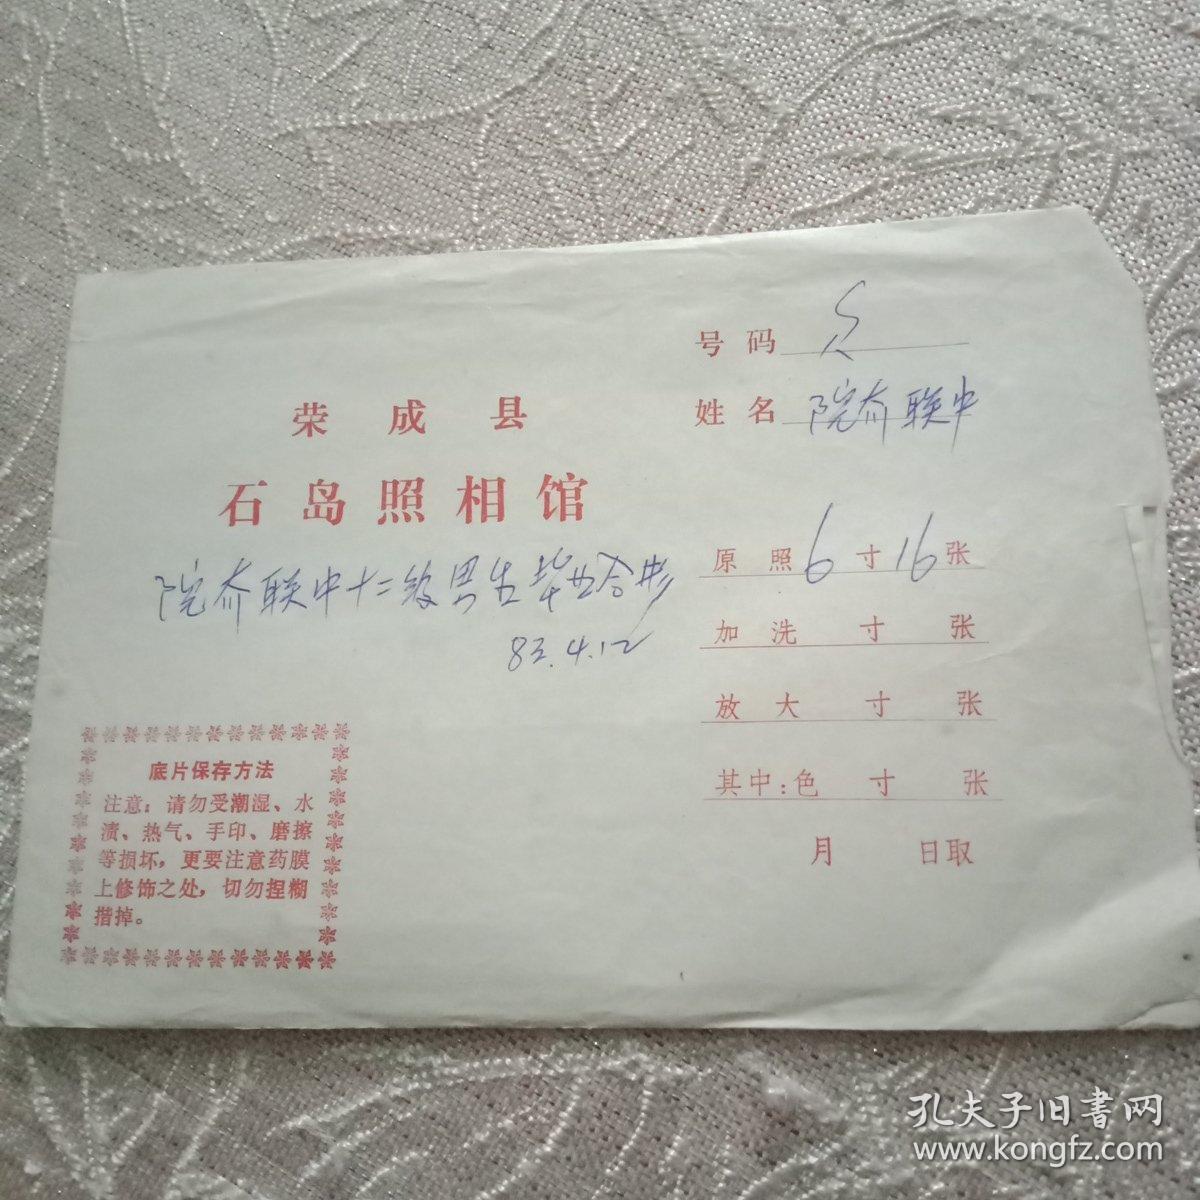 号码
姓名 院夼联中
荣成县
石岛照相馆
院夼联中十二级男生毕业合影
83.4.12
原照6寸16张
加洗 寸 张
放大 寸 张
其中:色 寸 张
月 日取
底片保存方法
注意:请勿受潮湿、水
渍、热气、手印、磨擦
等损坏,更要注意药膜
上修饰之处,切勿捏糊
揩掉。
孔夫子旧书网
www.kongfz.com